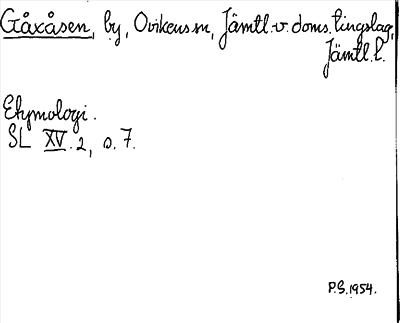 Gåxåsen, by, Ovikens sn, Jämtl. v. doms. tingslag,
Jämtl. l.
Etymologi.
SL XV. 2, s. 7.
P.S. 1954.